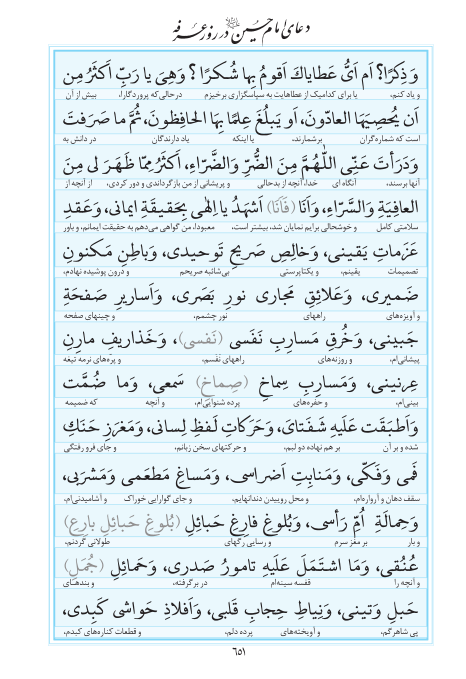 دعای امام حسین علیه‌السلام در روز عرفه
وَذِكرًا؟ اَم اَىُّ عَطاياكَ اَقومُ بِها شُكرًا ؟ وَهِىَ يا رَبِّ اَكثَرُ مِن
و یاد کنم، یا برای کدامیک از عطاهایت به سپاسگزاری برخیزم درحالی‌که پروردگارا، بیش از آن
اَن يُحصِيَهَا العادّونَ، اَو يَبلُغَ عِلمًا بِهَا الحافِظونَ، ثُمَّ ما صَرَفتَ
است که شماره‌گران برشمارند، یا اینکه یاد دارندگان در دانش به
وَدَرَأتَ عَنّى اللّٰهُمَّ مِنَ الضُّرِّ وَالضَّرّاءِ، اَكثَرُ مِمّا ظَهَرَ لى مِنَ
آنها برسند، آنگاه ای خدا، آنچه از بدحالی و پریشانی از من بازگرداندی و دور کردی، از آنچه از
العافِيَةِ وَالسَّرّاءِ، وَاَنَا (فَاَنَا) اَشهَدُ يا اِلٰهى بِحَقيقَةِ ايمانى، وَعَقدِ
سلامتی کامل و خوشحالی برایم نمایان شد، بیشتر است، معبودا، من گواهی می‌دهم به حقیقت ایمانم، و باور
عَزَماتِ يَقينى، وَخالِصِ صَريحِ تَوحيدى، وَباطِنِ مَكنونِ
تصمیمات یقینم، و یکتاپرستی بی‌شائبه صریحم و درون پوشیده نهادم،
ضَميرى، وَعَلائِقِ مَجارى نورِ بَصَرى، وَاَساريرِ صَفحَةِ
و آویزه‌های راههای نور چشمم، و چینهای صفحه
جَبينى، وَخُرقِ مَسارِبِ نَفَسى (نَفسى)، وَخَذاريفِ مارِنِ
پیشانی‌ام، و روزنه‌های راههای نفسم، و پره‌های نرمه تیغه
عِرنينى، وَمَسارِبِ سِماخِ (صِماخِ) سَمعى، وَما ضُمَّت
بینی‌ام، و حفره‌های پرده شنوایی‌ام، و آنچه که ضمیمه
وَاَطبَقَت عَلَيهِ شَفَتاىَ، وَحَرَكاتِ لَفظِ لِسانى، وَمَغرَزِ حَنَكِ
شده و بر آن بر هم نهاده دو لبم، و حرکتهای سخن زبانم، و جای فرو رفتگی
فَمى وَفَكّى، وَمَنابِتِ اَضراسى، وَمَساغِ مَطعَمى وَمَشرَبى،
سقف دهان و آرواره‌ام، و محل روییدن دندانهایم، و جای گوارایی خوراک و آشامیدنی‌ام،
وَحِمالَةِ اُمِّ رَأسى، وَبُلوغِ فارِغِ حَبائِلِ (بُلوغِ حَبائِلِ بارِعِ)
و بار بر مغز سرم و رسایی رگهای طولانی گردنم،
عُنُقى، وَمَا اشتَمَلَ عَلَيهِ تامورُ صَدرى، وَحَمائِلِ (جُمَلِ)
و آنچه را قفسه سینه‌ام در برگرفته، و بندهای
حَبلِ وَتينى، وَنِياطِ حِجابِ قَلبى، وَاَفلاذِ حَواشى كَبِدى،
پی شاهرگم، و آویخته‌های پرده دلم، و قطعات کناره‌های کبدم،
٦٥١